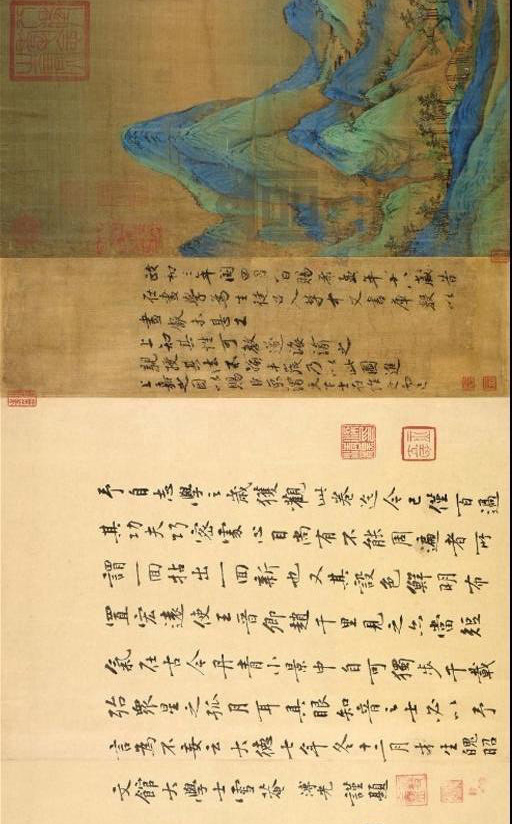 政和三年閏四月一日賜希孟年十八歲昔
在畫學為生徒召入禁中文書庫數以
畫獻未甚工
上知其性可教遂誨諭之
親授其法不踰半歲乃以此圖進
上嘉之因以賜臣京謂天下士在作之而已
予自志學之歲獲觀此卷迄今已僅百過
其功夫巧密處心目尚有不能周遍者所
謂一回拈出一回新也又其設色鮮明布
置宏遠使王晉卿趙千里見之亦當短
氣在古今丹青小景中自可獨步千載
殆眾星之孤月耳具眼知音之士必以予
言為不妄云大德七年冬十二月才生魄昭
文館大學士雪菴 溥光 謹題